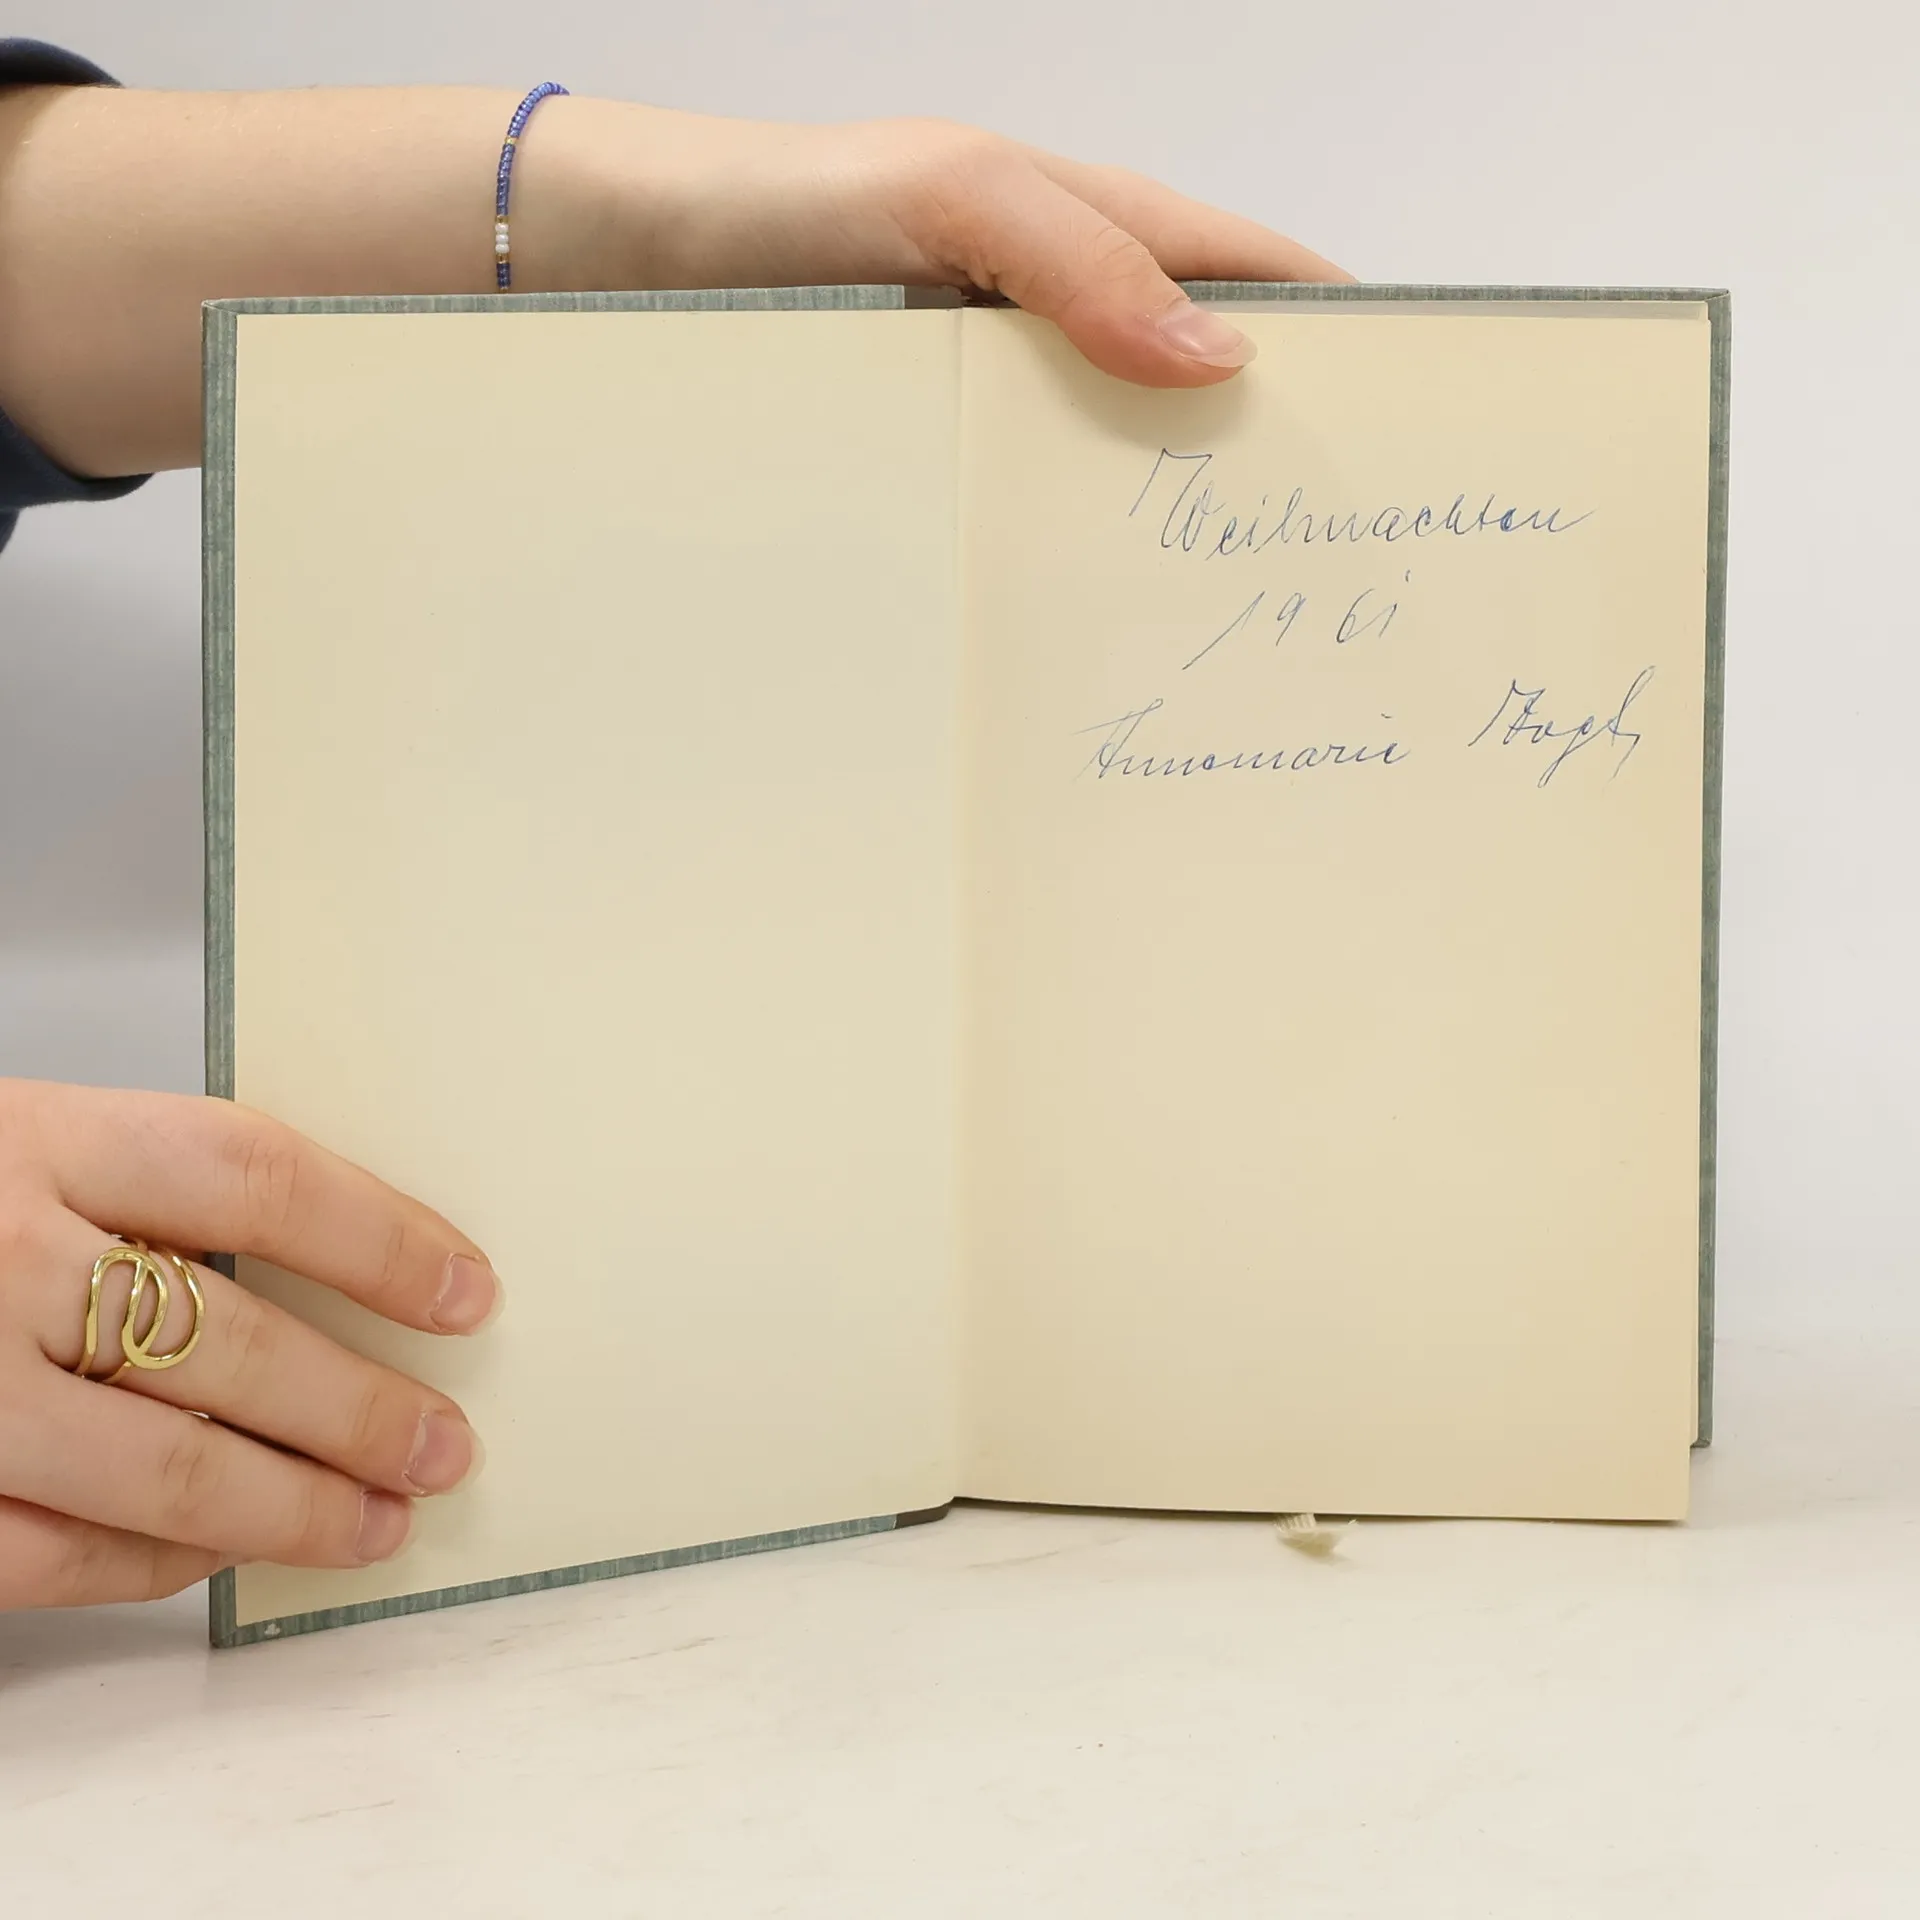 Weihnachten
1961
Annemarie Vogt